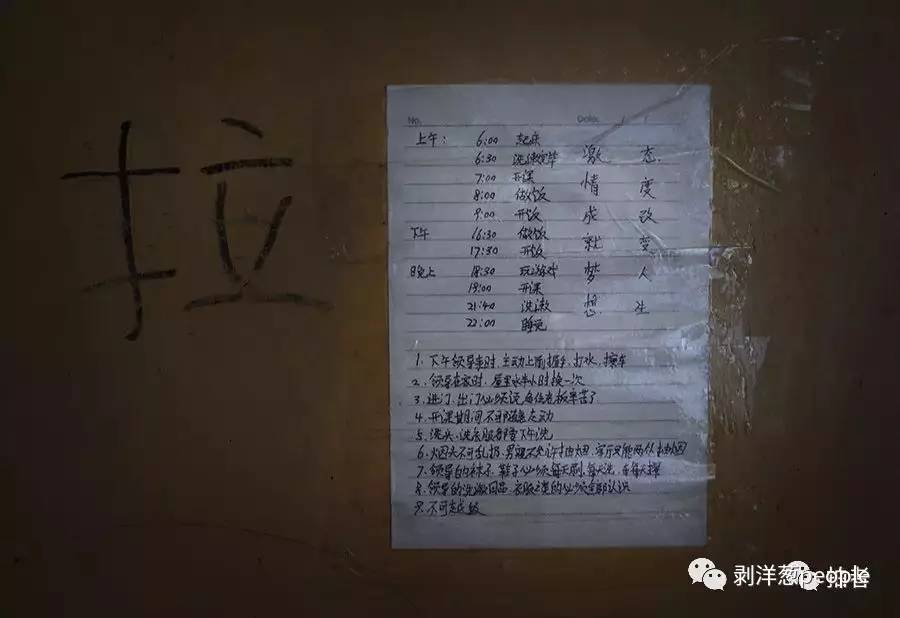 拉
No. Date. / /
上午: 6:00 起床
6:30 洗漱完毕
7:00 开课
8:00 做饭
9:00 开饭
下午 16:30 做饭
17:30 开饭
晚上 18:30 玩游戏
19:00 开课
21:40 洗漱
22:00 睡觉
激情成就梦想
态度改变人生
1、下午领导来时、主动上前握手、打水、擦车
2、领导在家时、屋里水半小时换一次
3、进门、出门必须说各位老板辛苦了
4、开课期间不可随意走动
5、洗头、洗衣服都要下午洗
6、烟头不可乱扔、男寝不允许抽烟、客厅只能两人抽烟
7、领导的袜子、鞋子必须每天刷、每天洗、
8、领导的洗漱用品、衣服之类的必须全部认识
9、不可越级
剥洋葱people
拍者